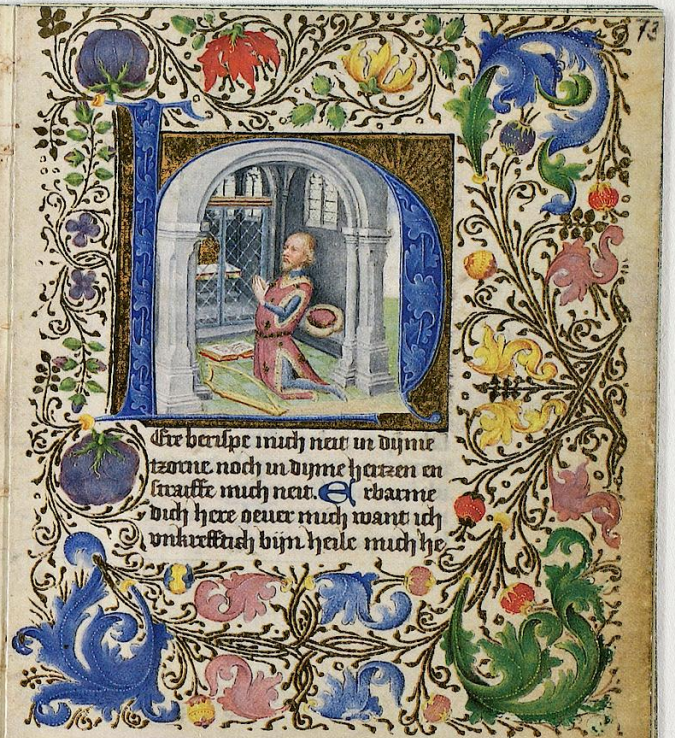 73
H
Ere berispe mich neit in dijme
tzorne noch in dijme hertzen en
straiffe mich neit. Erbarme
dich here oeuer mich want ich
vnkrefftich bijn heile mich he